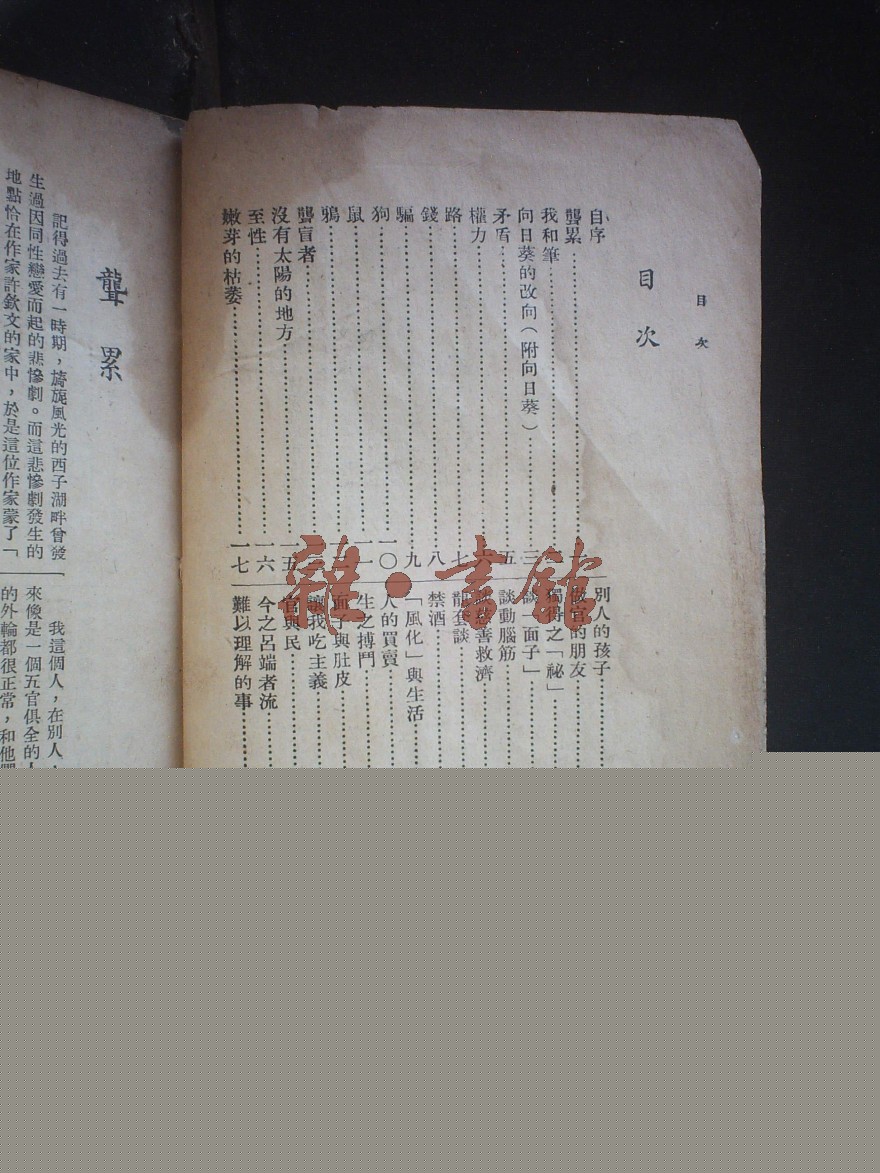 目次
目次
自序
聾累……一
我和筆……
向日葵的改向(附向日葵)……三
矛盾……五
權力……六
路……七
錢……八
騙……九
狗……一〇
鼠……一一
鴉……
聾盲者……
沒有太陽的地方……一五
至性……一六
嫩芽的枯萎……一七
別人的孩子……
做官的朋友……
獨得之「祕」……
談「面子」……
談動腦筋……
談慈善救濟……
龍套談……
禁酒……
「風化」與生活……
人的買賣……
生之搏鬥……
面子與肚皮……
讓我吃主義……
官與民……
今之呂端者流……
難以理解的事……
聾累
記得過去有一時期,旖旎風光的西子湖畔曾發
生過因同性戀愛而起的悲慘劇。而這悲慘劇發生的
地點恰在作家許欽文的家中,於是這位作家蒙了「
我這個人,在別人
來像是一個五官俱全的人
的外輪都很正常,和他
雜·書館